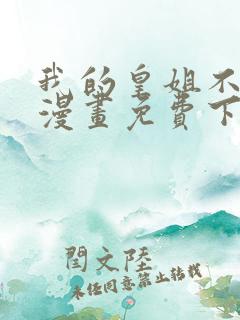 我的皇姐不
漫畫免費下
閆文陸
未经同意禁止转载